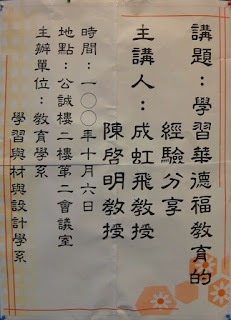 講題：學習華德福教育的
經驗分享
主講人：成虹飛教授
陳啓明教授
時間：一○○年十月六日
地點：公誠樓二樓第二會議室
主辦單位：教育學系
學習與材與設計學系